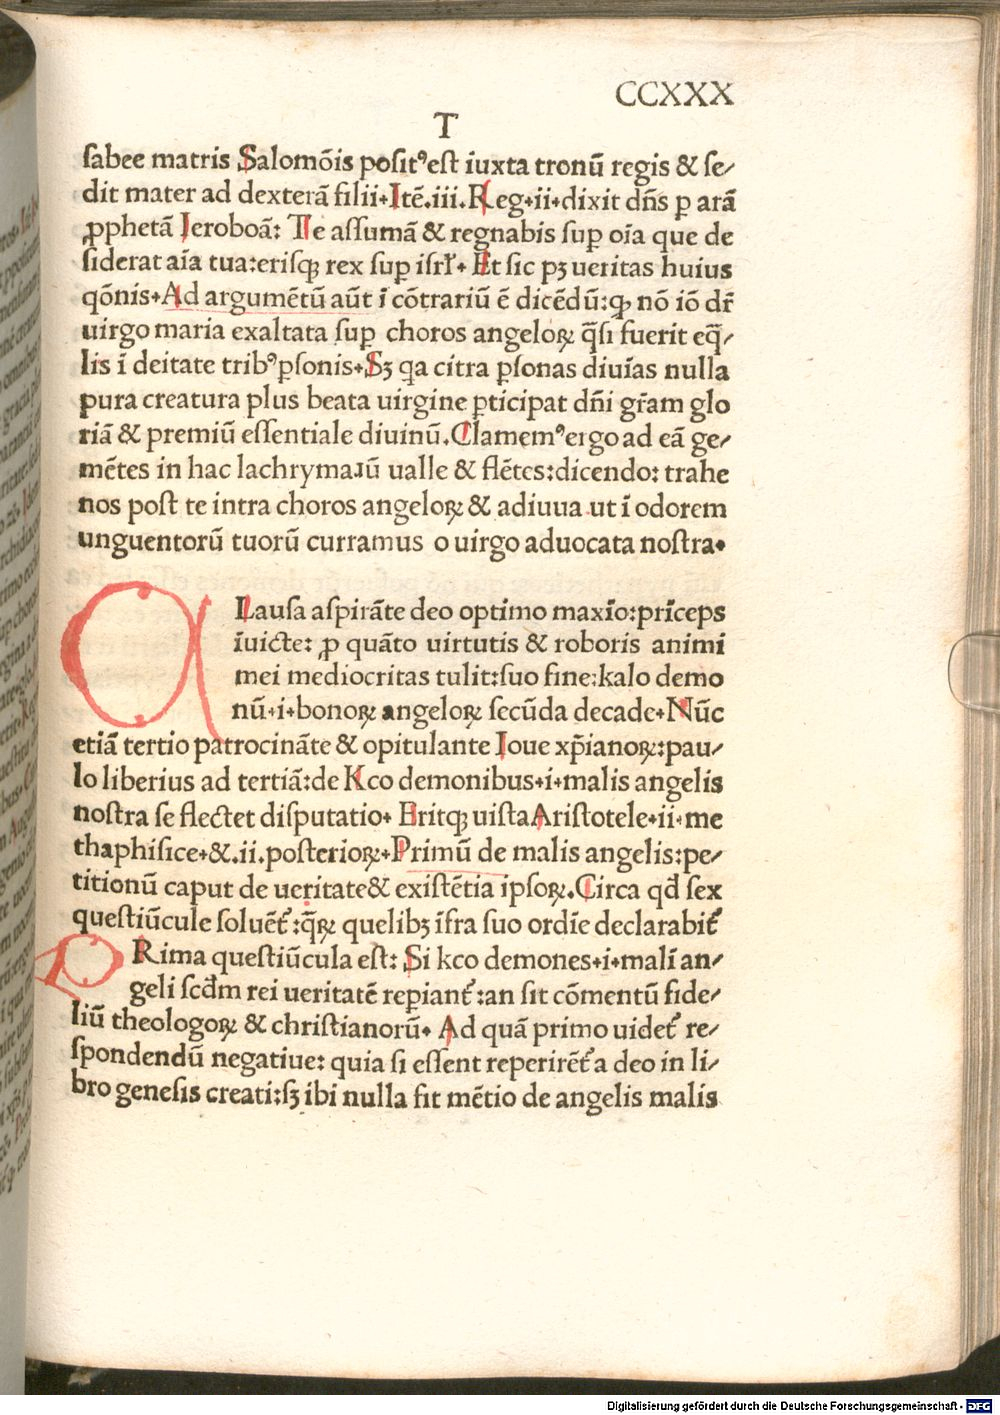 CCXXX
T
sabee matris Salomōis positꝰ est iuxta tronū regis & se⸗
dit mater ad dexterā filii. Itē. iii. Reg. ii. dixit dn̄s ꝑ arā
ꝓphetā Jeroboā: Te assumā & regnabis suꝑ oīa que de
siderat aīa tua: erisqꝫ rex suꝑ isrl̄. Et sic pꝫ ueritas huius
qōnis. Ad argumētū aūt ī cōtrariū ē dicēdū: ꝙ nō iō dr̄
uirgo maria exaltata suꝑ choros angeloꝝ q̄si fuerit eq̄⸗
lis ī deitate tribꝰ ꝑsonis. Sꝫ qa citra ꝑsonas diuīas nulla
pura creatura plus beata uirgine ꝑticipat dn̄i gr̄am glo
riā & premiū essentiale diuinū. Clamemꝰ ergo ad eā ge⸗
mētes in hac lachrymaꝛū ualle & flētes: dicendo: trahe
nos post te intra choros angeloꝝ & adiuua ut ī odorem
unguentorū tuorū curramus o uirgo aduocata nostra.
CLausa aspirāte deo optimo maxīo: prīceps
īuicte: ꝓ quāto uirtutis & roboris animi
mei mediocritas tulit: suo fine: kalo demo
nū. i. bonoꝝ angeloꝝ secūda decade. Nūc
etiā tertio patrocināte & opitulante Ioue xp̄ianoꝝ: pau⸗
lo liberius ad tertiā: de Kco demonibus. i. malis angelis
nostra se flectet disputatio. Eritqꝫ uista Aristotele. ii. me
thaphisice. &. ii. posterioꝝ. Primū de malis angelis: pe⸗
titionū caput de ueritate & existētia ipsoꝝ. Circa qd̄ sex
questiūcule soluēt̄: q̄ꝝ quelibꝫ īfra suo ordīe declarabit̄
PRima questiūcula est: Si kco demones. i. malī an⸗
geli scd̄m rei ueritatē reꝑiant̄: an sit cōmentū fide⸗
liū theologoꝝ & christianorū. Ad quā primo uidet̄ re⸗
spondendū negatiue: quia si essent reperirēt̄ a deo in li⸗
bro genesis creati: sꝫ ibi nulla fit mētio de angelis malis
Digitalisierung gefördert durch die Deutsche Forschungsgemeinschaft - DFG